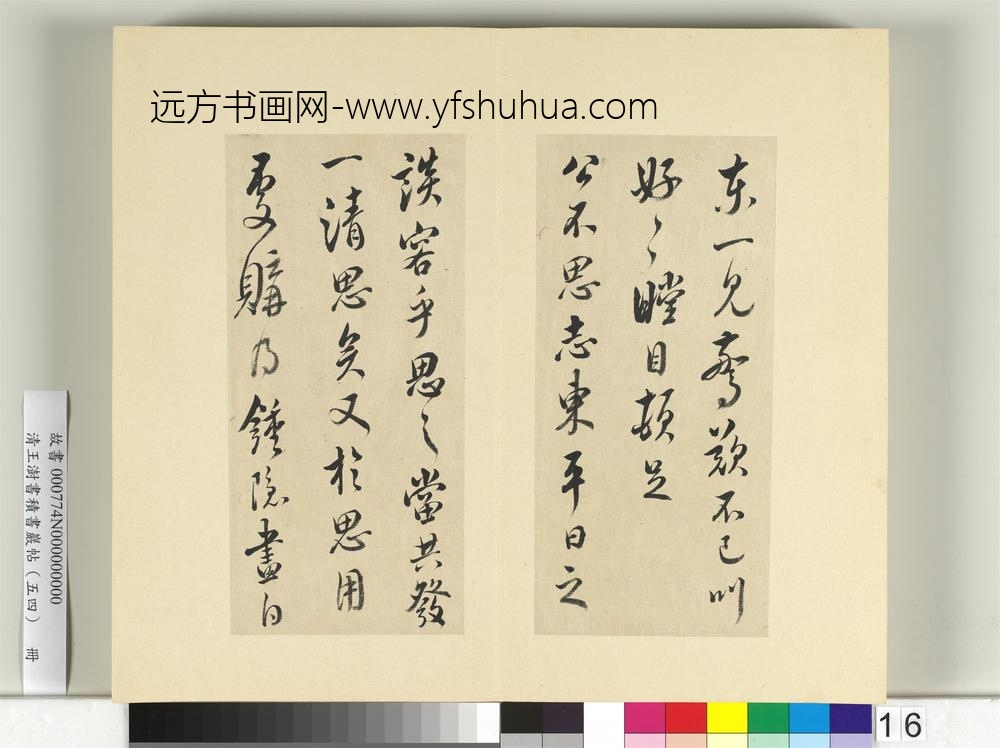 远方书画网-www.yfshuhua.com
东一见惊叹不已叫
好〻瞠目顿足
公不思志東平日之
談容乎思之當共發
一清思矣又於思用
更購乃鍾隱畫白
故書 000774N000000000
清王澍書積書巖帖(五四) 冊
16